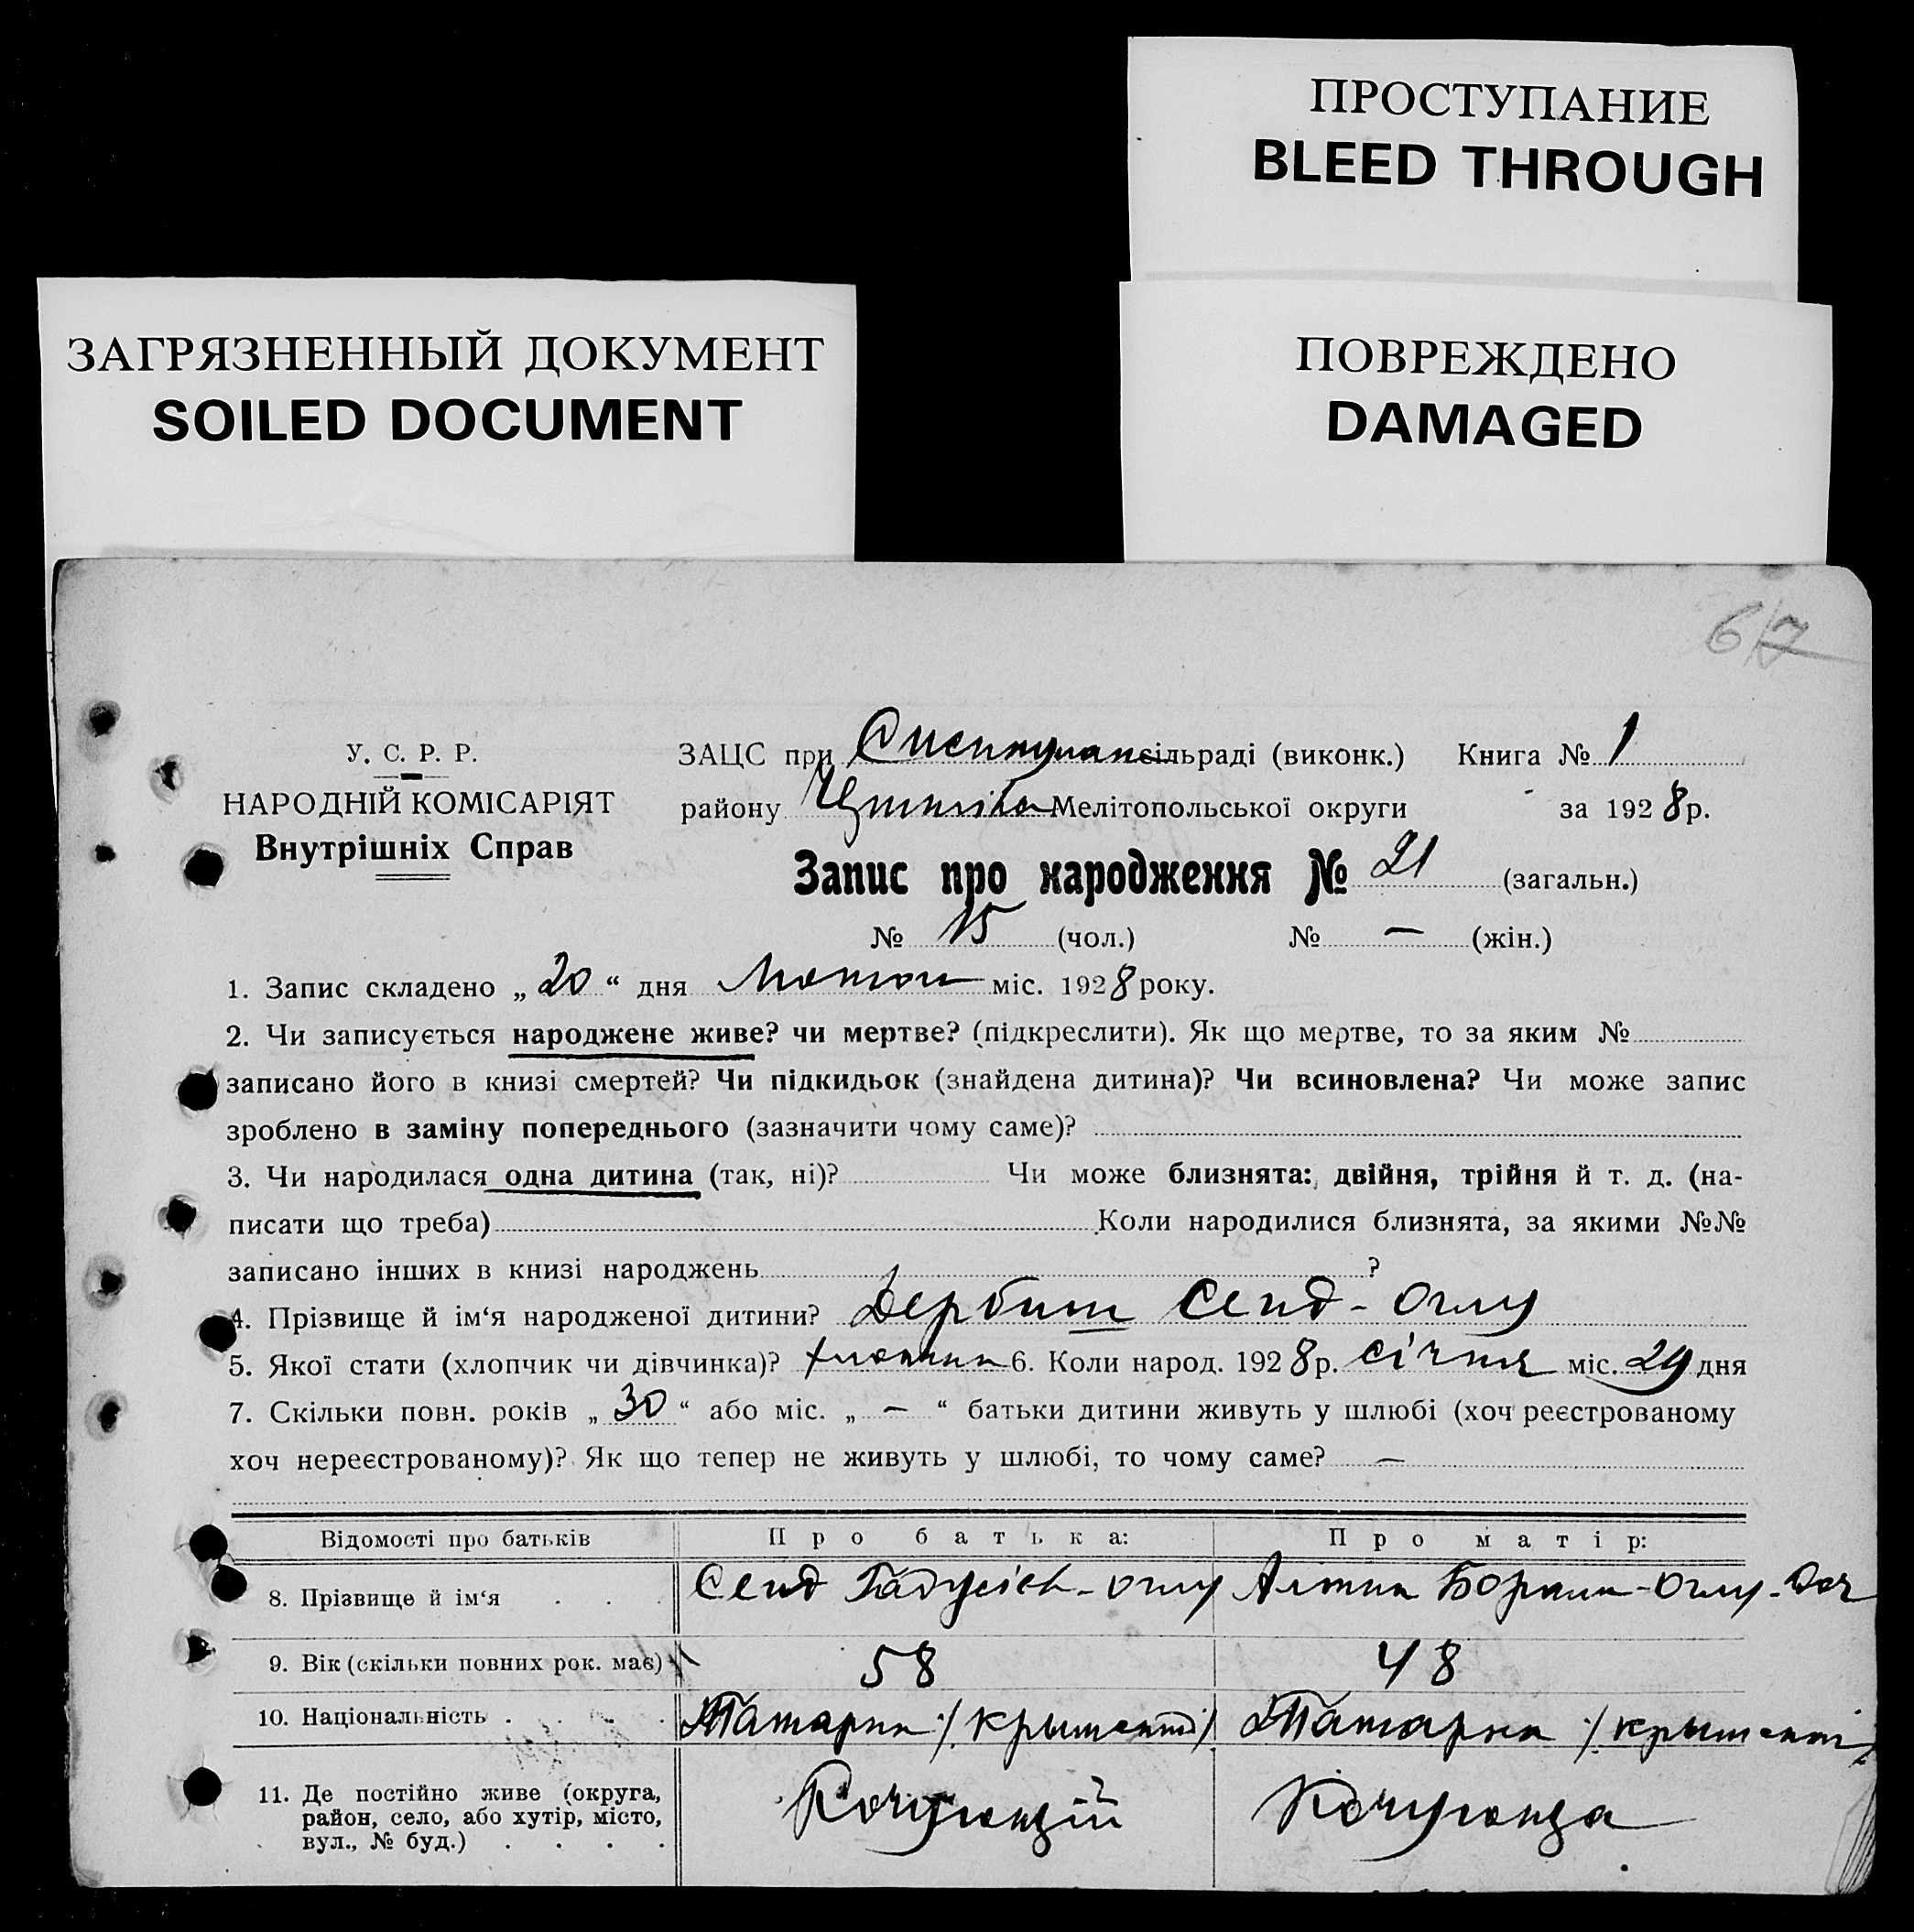 ПРОСТУПАНИЕ
BLEED THROUGH
ЗАГРЯЗНЕННЫЙ ДОКУМЕНТ
SOILED DOCUMENT
ПОВРЕЖДЕНО
DAMAGED
67
У. С. Р. Р.
НАРОДНІЙ КОМІСАРІЯТ
Внутрішніх Справ
ЗАЦС при сільраді (виконк.) Книга № 1
району Мелітопольської округи за 1928 р.
Запис про народження № 21 (загальн.)
№ 15 (чол.) № — (жін.)
1. Запис складено „ 20 “ дня Лютого міс. 1928 року.
2. Чи записується народжене живе? чи мертве? (підкреслити). Як що мертве, то за яким №
записано його в книзі смертей? Чи підкидьок (знайдена дитина)? Чи всиновлена? Чи може запис
зроблено в заміну попереднього (зазначити чому саме)?
3. Чи народилася одна дитина (так, ні)? Чи може близнята: двійня, трійня й т. д. (на-
писати що треба) Коли народилися близнята, за якими №№
записано інших в книзі народжень ?
4. Прізвище й ім‘я народженої дитини? Дербиш Сеид-Оглу
5. Якої стати (хлопчик чи дівчинка)? хлопчик 6. Коли народ. 1928 р. січня міс. 29 дня
7. Скільки повн. років „ 30 “ або міс. „ — “ батьки дитини живуть у шлюбі (хоч реєстрованому
хоч нереєстрованому)? Як що тепер не живуть у шлюбі, то чому саме? —
Відомості про батьків Про батька: Про матір:
8. Прізвище й ім‘я . . . Сеид -оглу Борали-Оглу-
9. Вік (скільки повних рок. має) 58 48
10. Національність . . . .
11. Де постійно живе (округа,
район, село, або хутір, місто,
вул., № буд.) . . . .
Кочующій Кочующа